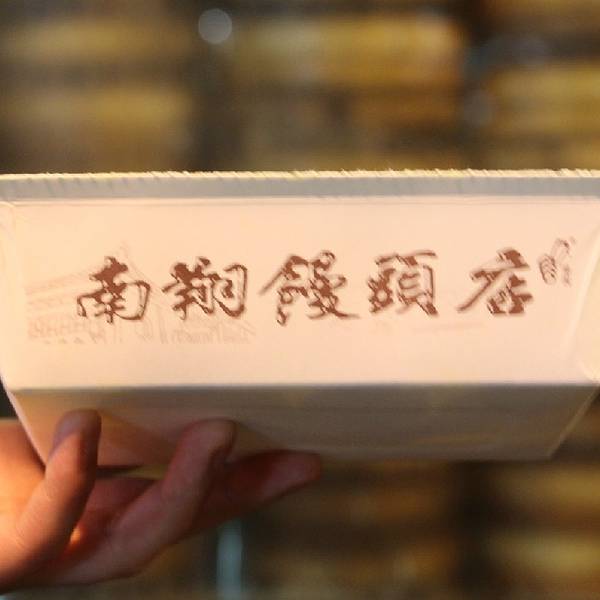 南翔饅頭店